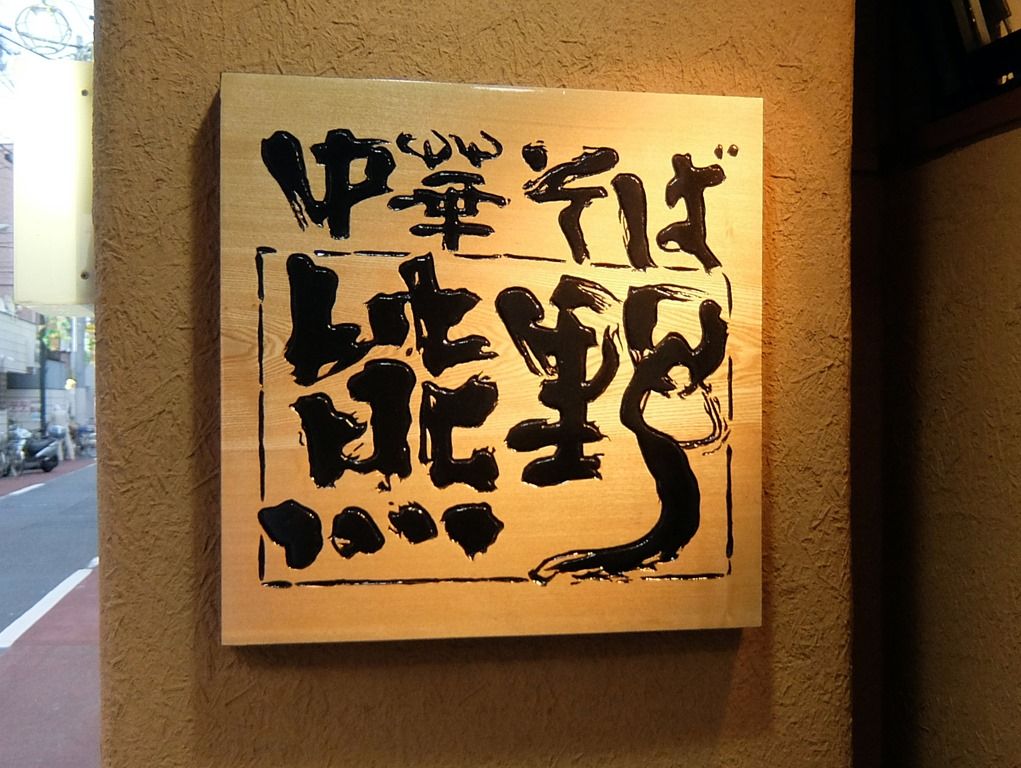 中華そば
熊野